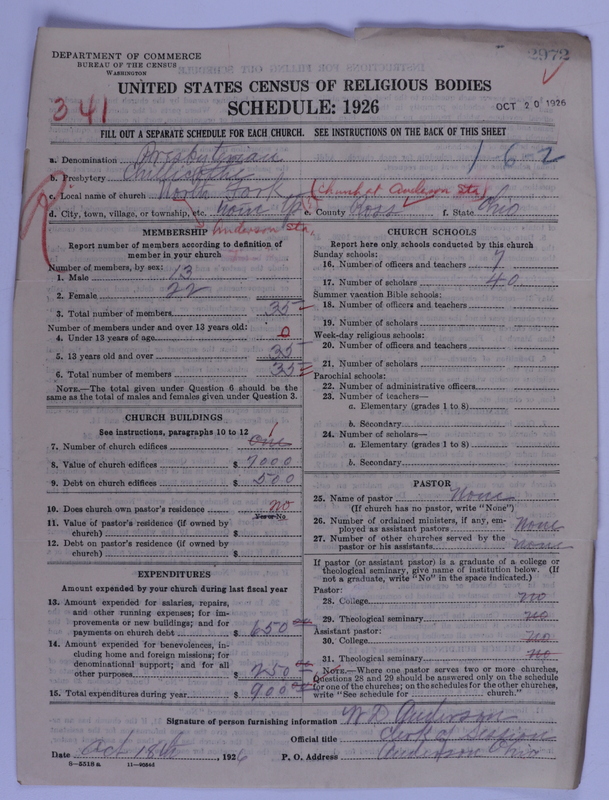 2972
DEPARTMENT OF COMMERCE
BUREAU OF THE CENSUS
WASHINGTON
UNITED STATES CENSUS OF RELIGIOUS BODIES
341
SCHEDULE: 1926
OCT 20 1926
FILL OUT A SEPARATE SCHEDULE FOR EACH CHURCH. SEE INSTRUCTIONS ON THE BACK OF THIS SHEET
a. Denomination Presbyterian
1-6-2
b. Presbytery Chillicothe
c. Local name of church North Fork (Church at Anderson Sta)
d. City, town, village, or township, etc. e. County Ross f. State Ohio
Anderson Sta,
MEMBERSHIP
Report number of members according to definition of
member in your church
Number of members, by sex:
1. Male 13
2. Female 22
3. Total number of members 35
Number of members under and over 13 years old:
4. Under 13 years of age 0
5. 13 years old and over 35
6. Total number of members 35
NOTE.—The total given under Question 6 should be the
same as the total of males and females given under Question 3.
CHURCH BUILDINGS
See instructions, paragraphs 10 to 12
7. Number of church edifices One 1
8. Value of church edifices $ 7000
9. Debt on church edifices $ 500
10. Does church own pastor's residence no
Yes or No
11. Value of pastor's residence (if owned by
church) $
12. Debt on pastor's residence (if owned by
church) $
EXPENDITURES
Amount expended by your church during last fiscal year
13. Amount expended for salaries, repairs,
and other running expenses; for im-
provements or new buildings; and for
payments on church debt $ 650 00
14. Amount expended for benevolences, in-
cluding home and foreign missions; for
denominational support; and for all
other purposes $ 250 00
15. Total expenditures during year $ 900 00
CHURCH SCHOOLS
Report here only schools conducted by this church
Sunday schools:
16. Number of officers and teachers 7
17. Number of scholars 40
Summer vacation Bible schools:
18. Number of officers and teachers
19. Number of scholars
Week-day religious schools:
20. Number of officers and teachers
21. Number of scholars
Parochial schools:
22. Number of administrative officers
23. Number of teachers—
a. Elementary (grades 1 to 8)
b. Secondary
24. Number of scholars—
a. Elementary (grades 1 to 8)
b. Secondary
PASTOR
25. Name of pastor None
(If church has no pastor, write "None")
26. Number of ordained ministers, if any, em-
ployed as assistant pastors None
27. Number of other churches served by the
pastor or his assistants None
If pastor (or assistant pastor) is a graduate of a college or
theological seminary, give name of institution below. (If
not a graduate, write "No" in the space indicated.)
Pastor:
28. College no
29. Theological seminary no
Assistant pastor:
30. College no
31. Theological seminary no
NOTE.—Where one pastor serves two or more churches,
Questions 28 and 29 should be answered only on the schedule
for one of the churches; on the schedules for the other churches,
write "See schedule for church."
Signature of person furnishing information W D Anderson
Official title Clerk of Session
Date Oct 18th, 1926 P. O. Address Anderson Ohio
8—5518 a